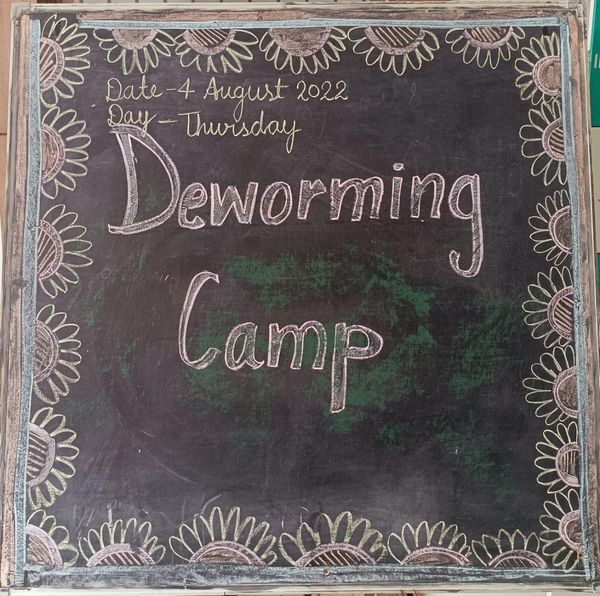 Date - 4 August 2022
Day - Thursday
Deworming
Camp